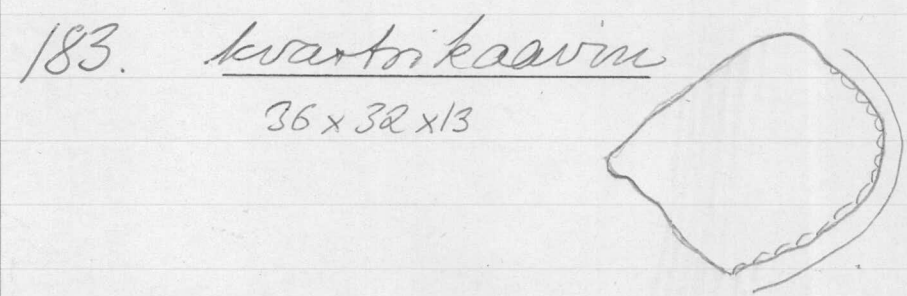 183. kvartsikaavin
36 x 32 x 13